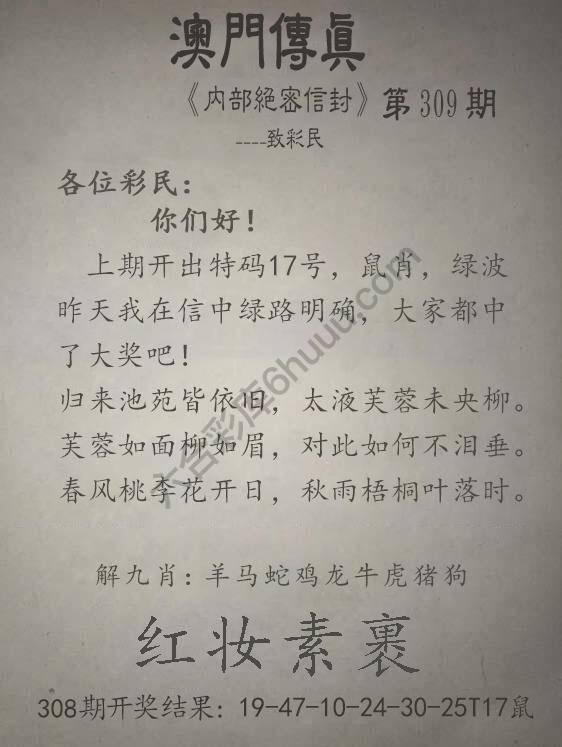 澳門傳眞
《内部絕密信封》第309期
----致彩民
各位彩民：
你们好！
上期开出特码17号，鼠肖，绿波
昨天我在信中绿路明确，大家都中
了大奖吧！
归来池苑皆依旧，太液芙蓉未央柳。
芙蓉如面柳如眉，对此如何不泪垂。
春风桃李花开日，秋雨梧桐叶落时。
六合彩库6huuu.com
解九肖：羊马蛇鸡龙牛虎猪狗
红妆素裹
308期开奖结果：19-47-10-24-30-25T17鼠